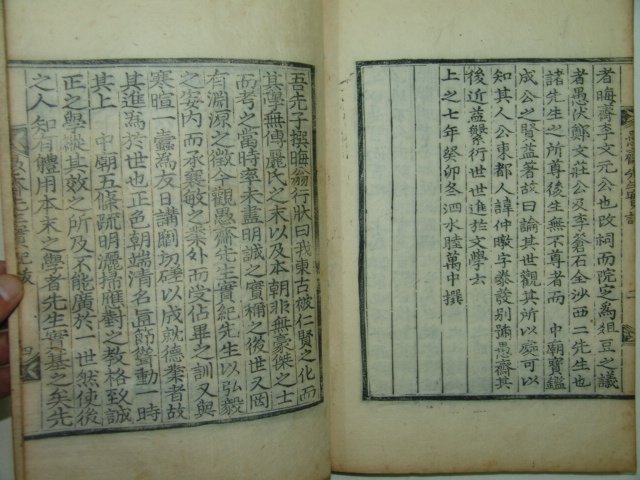 者晦齋李文元公也改祠而院定爲俎豆之議
者愚伏鄭文莊公及李蒼石全沙西二先生也
諸先生之所尊者後人無不尊者而 中廟寶鑑
成公之賢益著故曰論其世觀其所以處可以
知其人公東都人諱仲暾字泰發別號愚齋其
後近益繁行世世進於文學去
上之七年癸卯冬泗水睦萬中撰
吾先子撰晦翁行狀曰我東古被仁賢之化而
其學無傳麗氏之末以及本朝非無豪傑之士
而考之當時率未盡明誠之實稱之後世又罔
有淵源之徵今觀愚齋先生實紀先生以弘毅
之姿內而承襄敏之業外而受佔畢之訓又與
寒暄一蠹爲友日講劘切磋以成就德業者故
其進爲於世也正色朝端淸名直節聳動一時
其上 中廟五條疏明灑掃應對之敎格致誠
正之學縱其效之所及不能廣於一世然使後
之人知有體用本末之學者先生實基之矣先
愚齋先生實紀跋
四